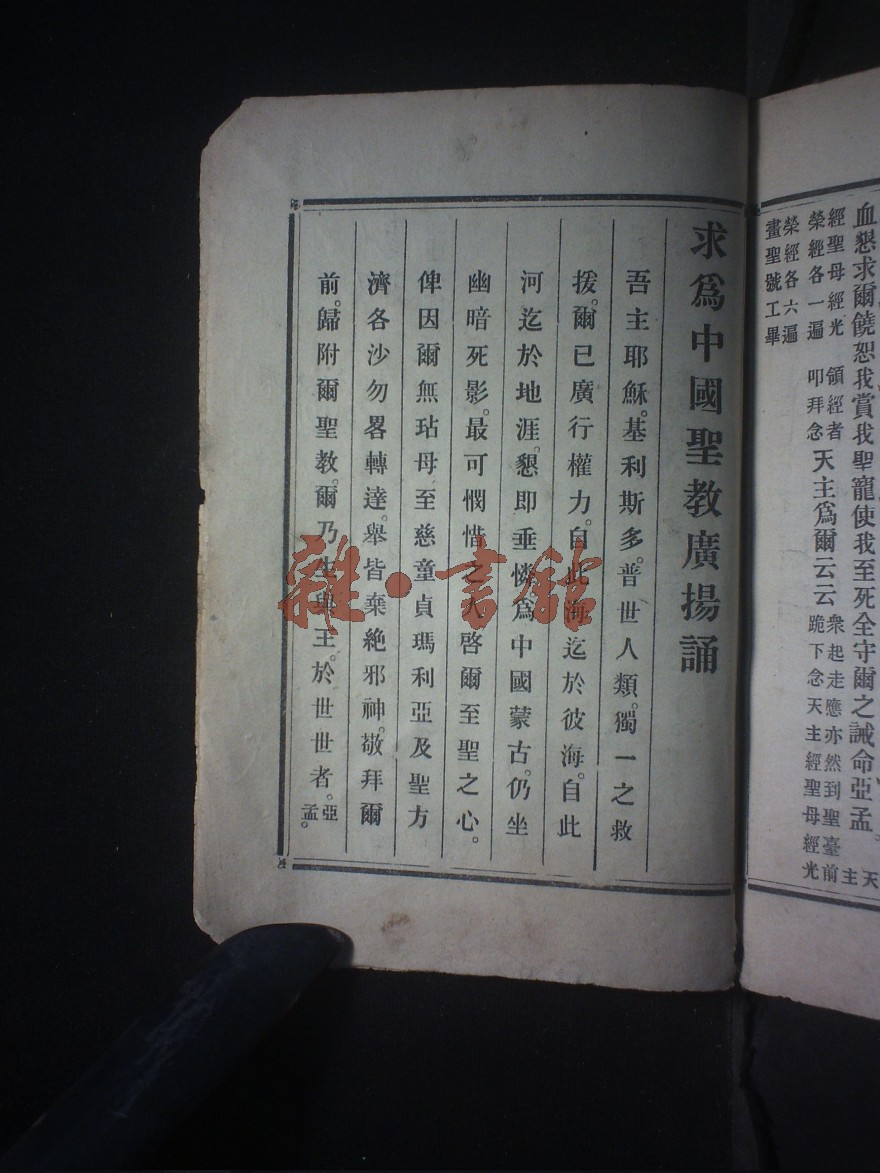 血懇求爾饒恕我賞我聖寵使我至死全守爾之誡命亞孟。天主
經聖母經光榮經各一遍 領經者叩拜念天主爲爾云云衆起走應亦然到聖臺前跪下念天主經聖母經光
榮經各六遍畫聖號工畢
求爲中國聖教廣揚誦
吾主耶穌。基利斯多。普世人類。獨一之救
援。爾已廣行權力。自此海迄於彼海。自此
河迄於地涯。懇即垂憐。爲中國蒙古。仍坐
幽暗死影。最可憫惜之人。啓爾至聖之心。
俾因爾無玷母至慈童貞瑪利亞及聖方
濟各沙勿畧轉達。舉皆棄絶邪神。敬拜爾
前。歸附爾聖教。爾乃生與王。於世世者。亞孟。
雜·書館